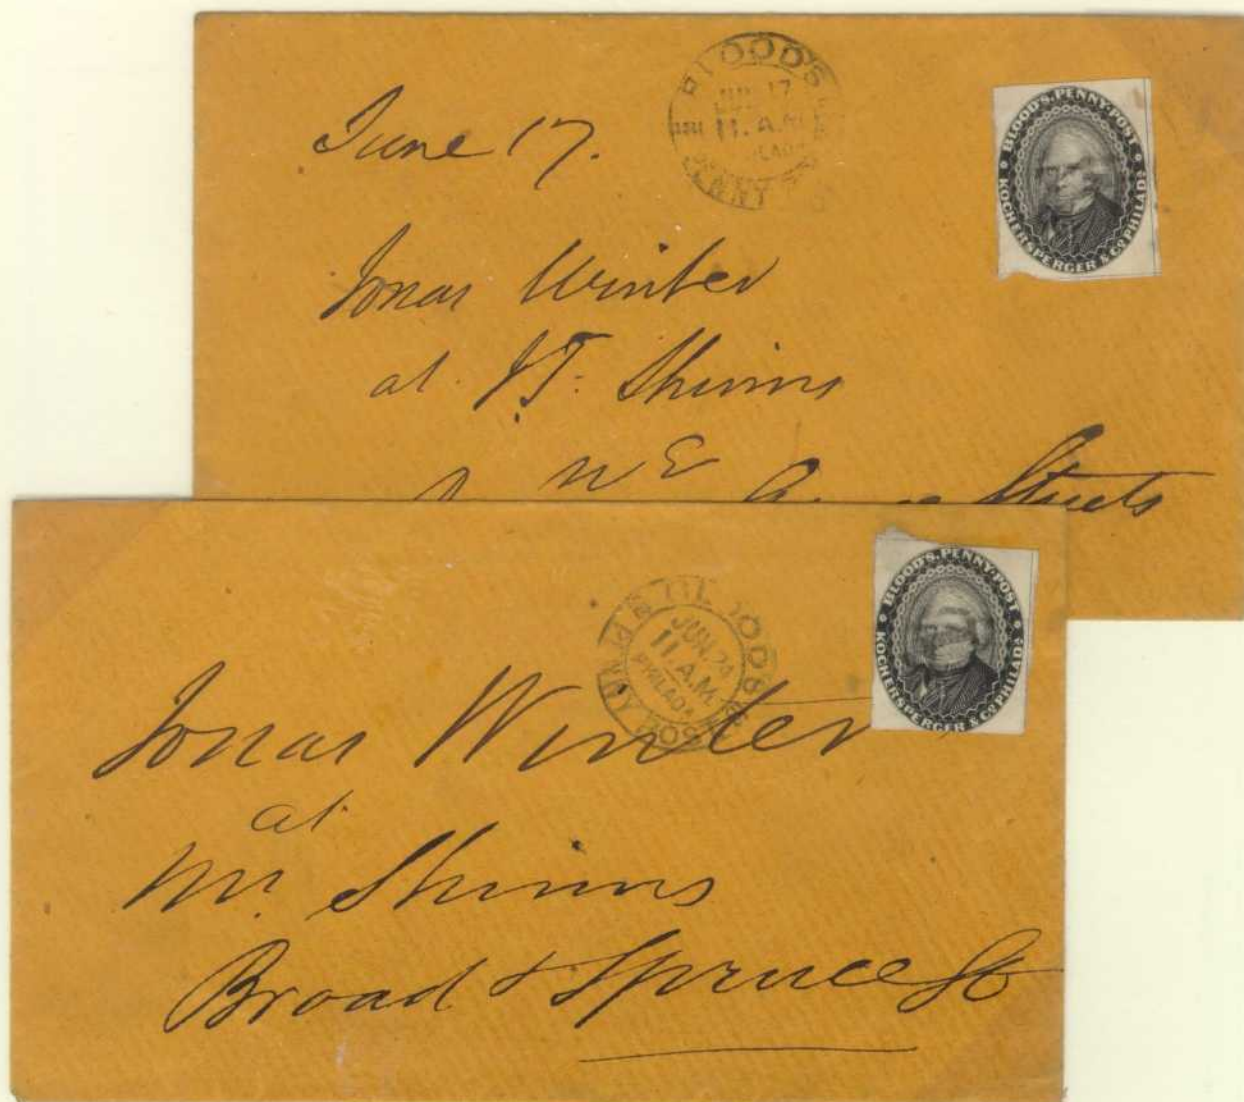 June 17.
BLOOD'S
JUN 17
11 A.M
PHILADA
PENNY
BLOOD'S. PENNY-POST
KOCHERSPERGER & CO PHILADA.
Jonas Winter
at J.T. Shinns
N E
Streets
BLOOD'S
JUN 24
11 A.M.
PHILADA
PENNY POST
BLOOD'S. PENNY-POST
KOCHERSPERGER & CO PHILADA.
Jonas Winter
at
Mr. Shinns
Broad & Spruce St